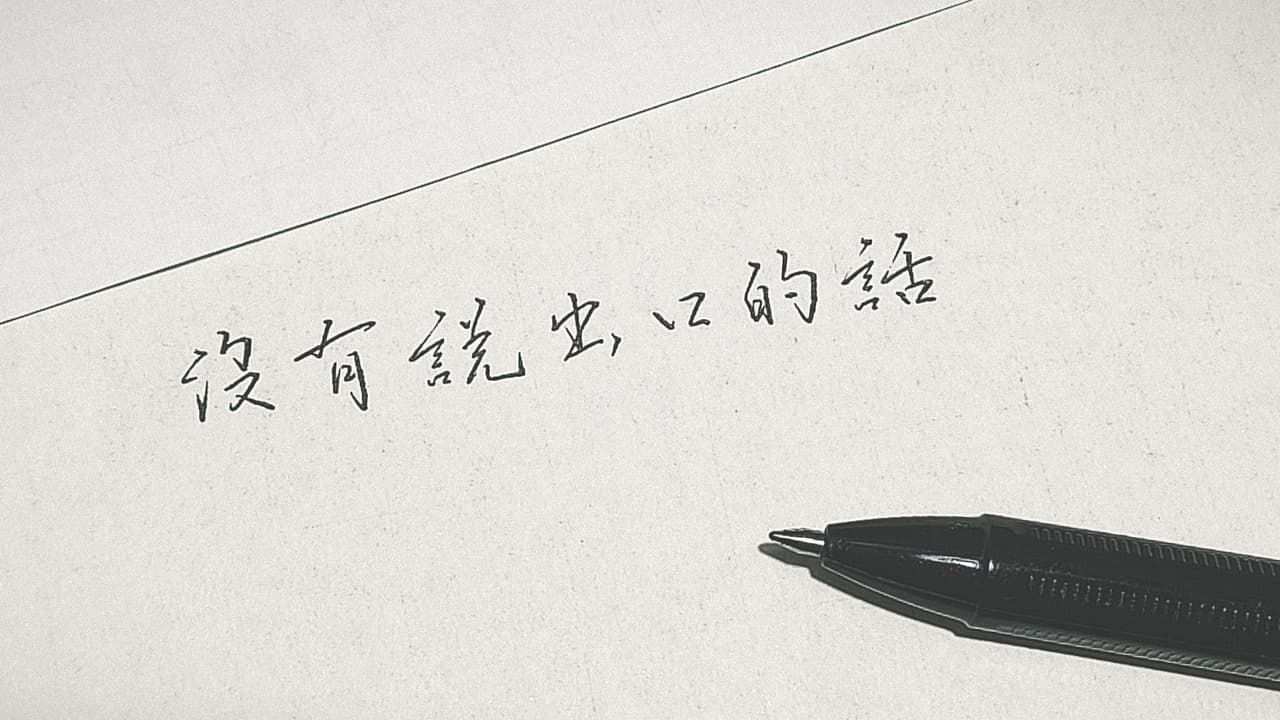 沒有說出口的話